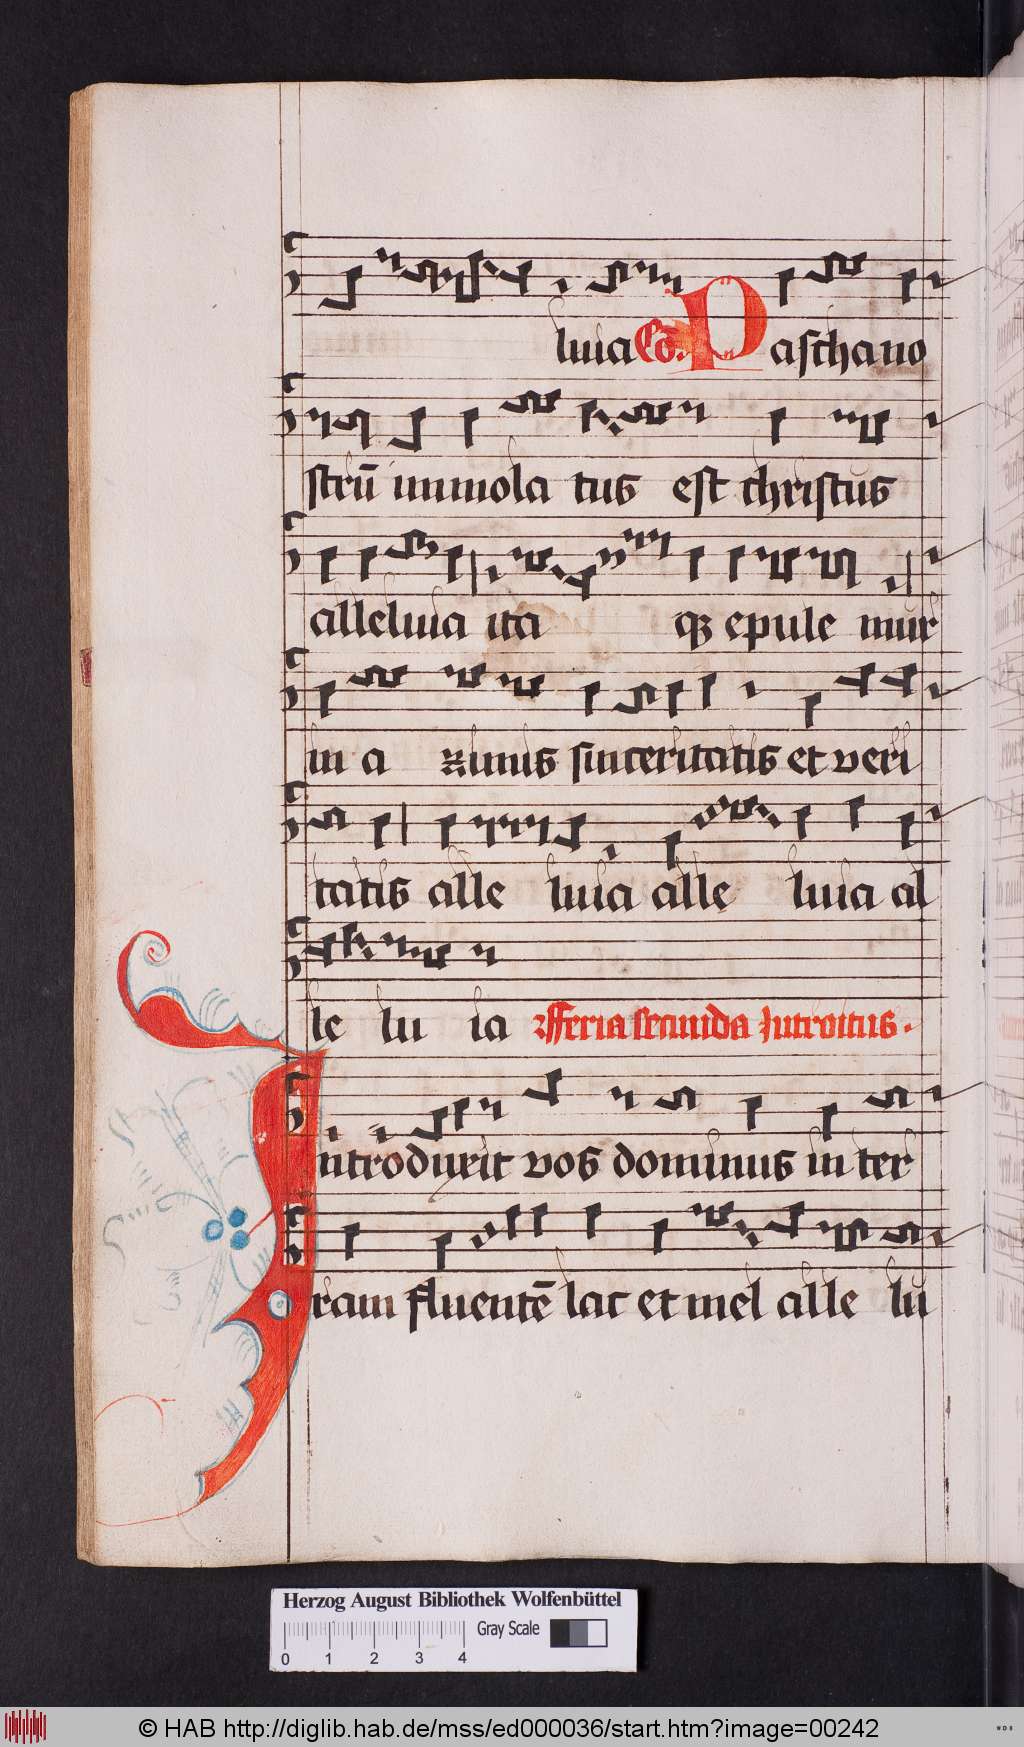 luia Cō. Pascha no
strū immola tus est christus
alleluia ita qꝫ epule mur
in a zimis sinceritatis et veri
tatis alle luia alle luia al
le lu ia Feria secunda Introitus.
Introduxit vos dominus in ter
ram fluentē lac et mel alle lu
Herzog August Bibliothek Wolfenbüttel
Gray Scale
0 1 2 3 4
© HAB http://diglib.hab.de/mss/ed000036/start.htm?image=00242